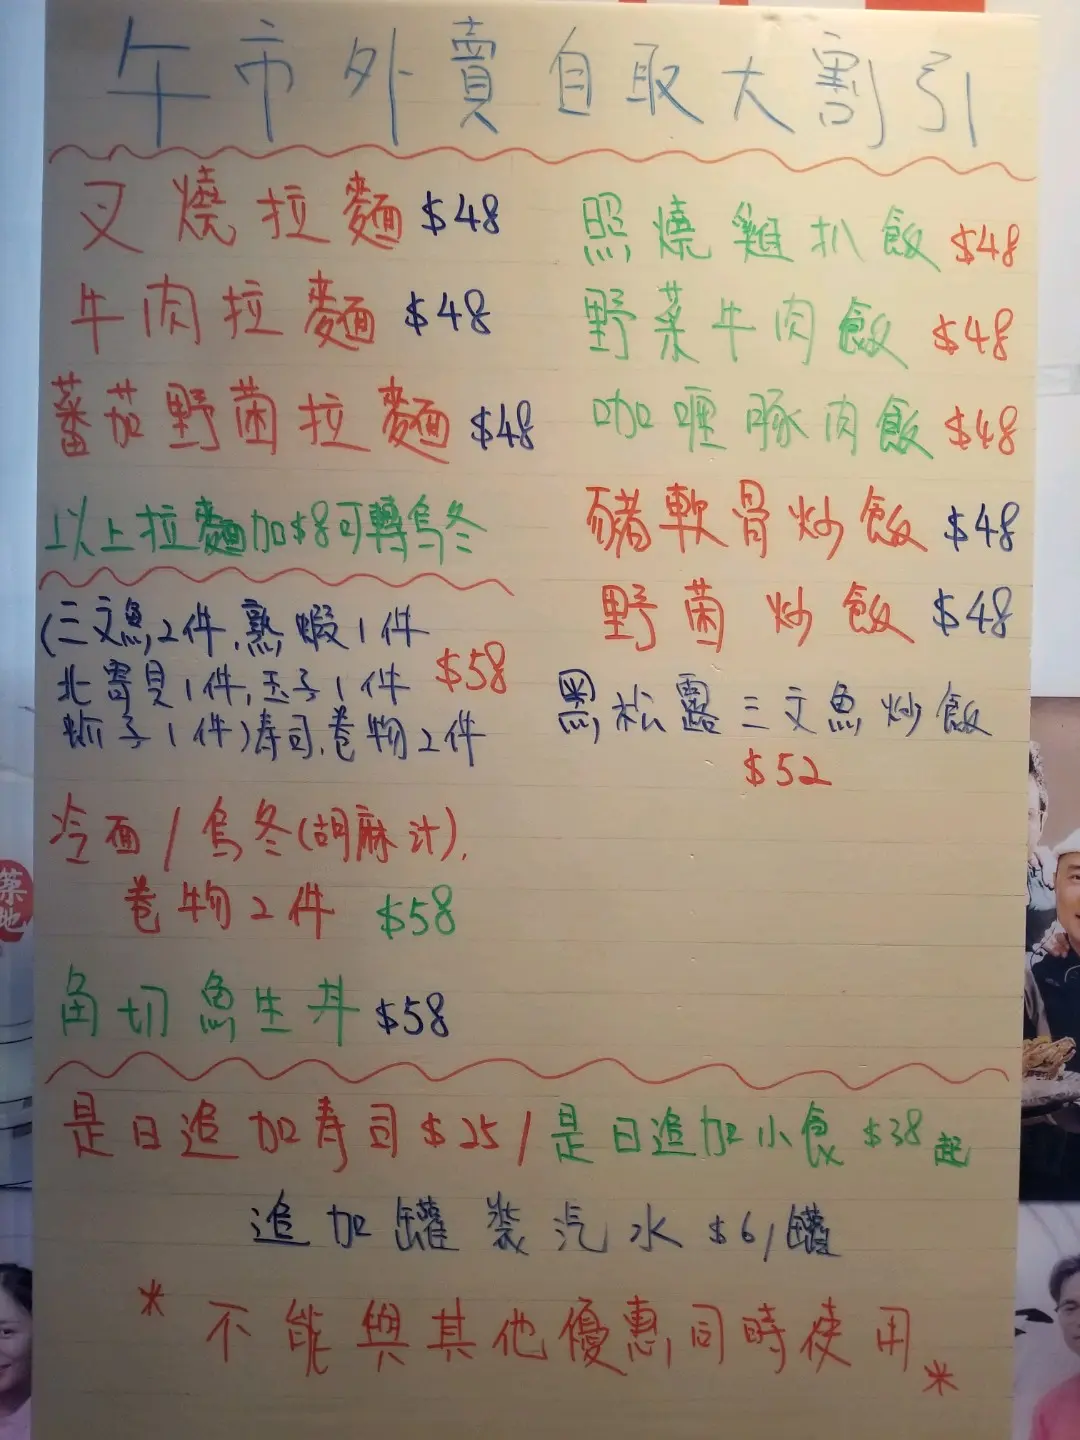 午市外賣自取大割引
叉燒拉麵 $48
牛肉拉麵 $48
蕃茄野菌拉麵 $48
以上拉麵加$8可轉烏冬
(三文魚2件.熟蝦1件
北寄貝1件,玉子1件 $58
鮞子1件)寿司.卷物2件
冷面/烏冬(胡麻汁),
卷物2件 $58
角切魚生丼 $58
照燒雞扒飯 $48
野菜牛肉飯 $48
咖喱豚肉飯 $48
豬軟骨炒飯 $48
野菌炒飯 $48
黑松露三文魚炒飯
$52
是日追加寿司$25/是日追加小食$38起
追加罐裝汽水$6/罐
*不能與其他優惠同時使用*
築地